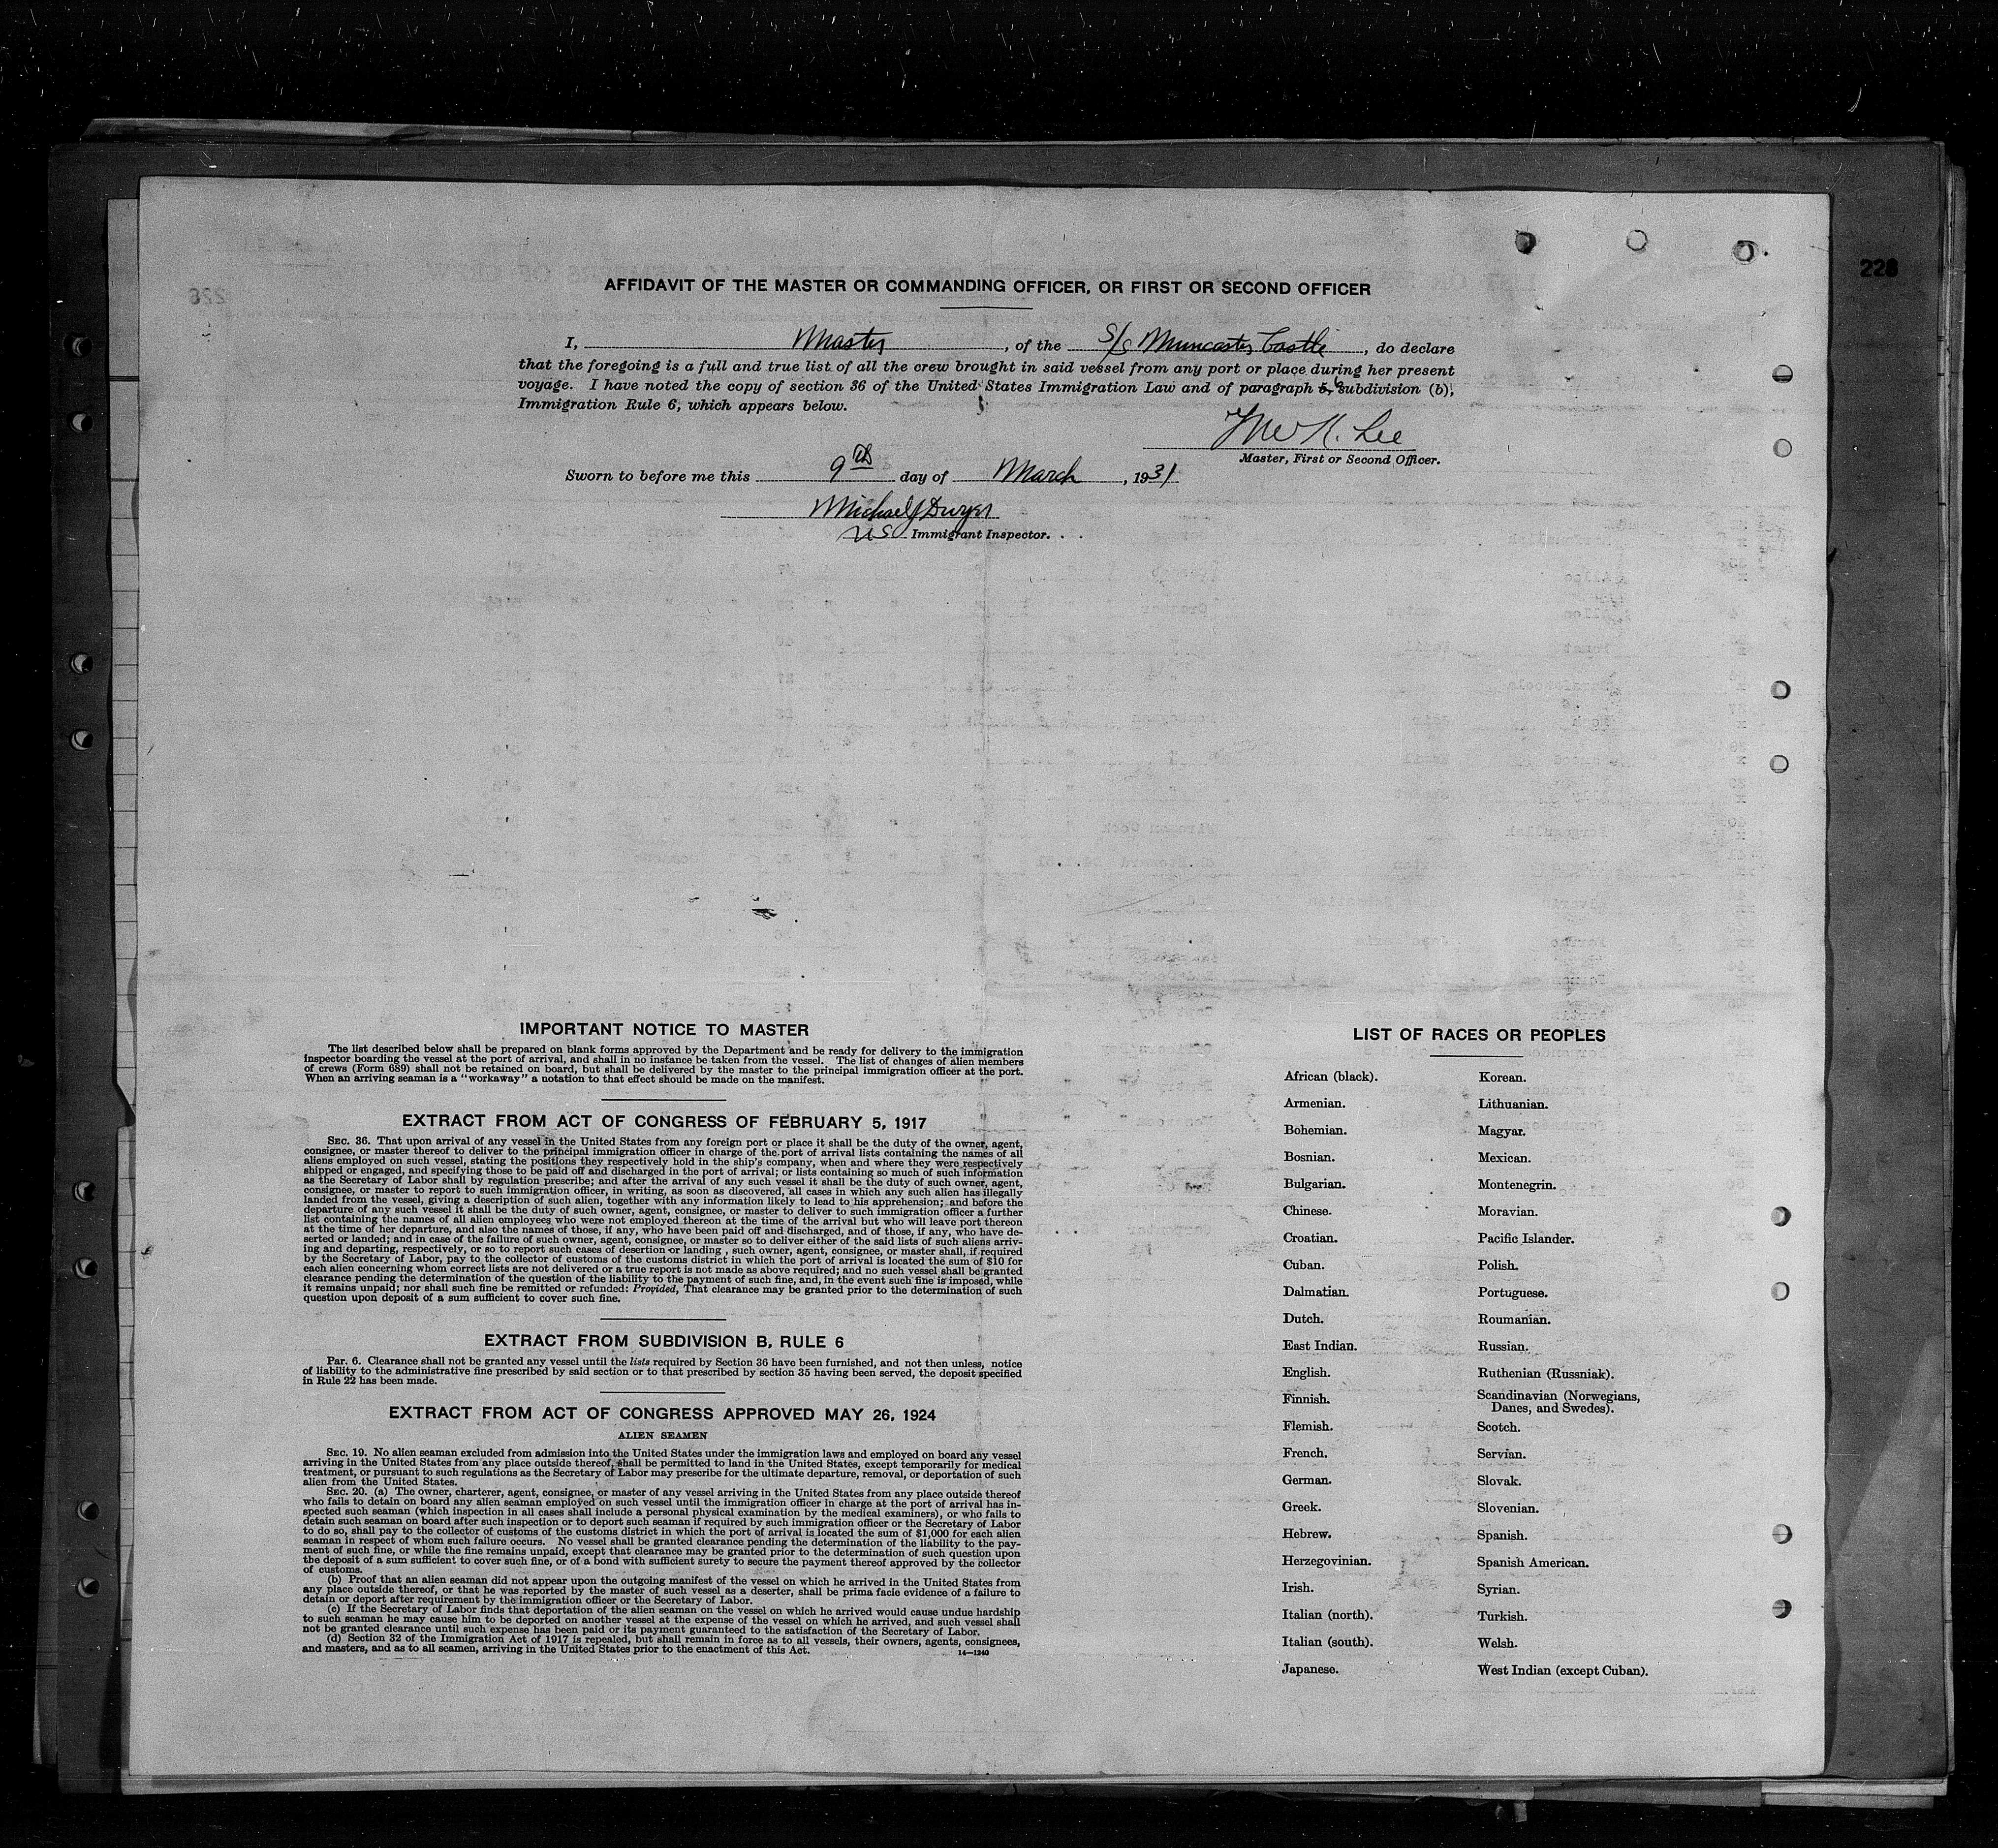 228
AFFIDAVIT OF THE MASTER OR COMMANDING OFFICER, OR FIRST OR SECOND OFFICER
I, Master, of the S/S Muncaster Castle, do declare
that the foregoing is a full and true list of all the crew brought in said vessel from any port or place during her present
voyage. I have noted the copy of section 36 of the United States Immigration Law and of paragraph 5, 6 subdivision (b),
Immigration Rule 6, which appears below.
K. Lee
Master, First or Second Officer.
Sworn to before me this 9th day of March, 1931
Michael J Dwyer
US Immigrant Inspector.
IMPORTANT NOTICE TO MASTER
The list described below shall be prepared on blank forms approved by the Department and be ready for delivery to the immigration
inspector boarding the vessel at the port of arrival, and shall in no instance be taken from the vessel. The list of changes of alien members
of crews (Form 689) shall not be retained on board, but shall be delivered by the master to the principal immigration officer at the port.
When an arriving seaman is a "workaway" a notation to that effect should be made on the manifest.
EXTRACT FROM ACT OF CONGRESS OF FEBRUARY 5, 1917
SEC. 36. That upon arrival of any vessel in the United States from any foreign port or place it shall be the duty of the owner, agent,
consignee, or master thereof to deliver to the principal immigration officer in charge of the port of arrival lists containing the names of all
aliens employed on such vessel, stating the positions they respectively hold in the ship's company, when and where they were respectively
shipped or engaged, and specifying those to be paid off and discharged in the port of arrival; or lists containing so much of such information
as the Secretary of Labor shall by regulation prescribe; and after the arrival of any such vessel it shall be the duty of such owner, agent,
consignee, or master to report to such immigration officer, in writing, as soon as discovered, all cases in which any such alien has illegally
landed from the vessel, giving a description of such alien, together with any information likely to lead to his apprehension; and before the
departure of any such vessel it shall be the duty of such owner, agent, consignee, or master to deliver to such immigration officer a further
list containing the names of all alien employees who were not employed thereon at the time of the arrival but who will leave port thereon
at the time of her departure, and also the names of those, if any, who have been paid off and discharged, and of those, if any, who have de-
serted or landed; and in case of the failure of such owner, agent, consignee, or master so to deliver either of the said lists of such aliens arriv-
ing and departing, respectively, or so to report such cases of desertion or landing, such owner, agent, consignee, or master shall, if required
by the Secretary of Labor, pay to the collector of customs of the customs district in which the port of arrival is located the sum of $10 for
each alien concerning whom correct lists are not delivered or a true report is not made as above required; and no such vessel shall be granted
clearance pending the determination of the question of the liability to the payment of such fine, and, in the event such fine is imposed, while
it remains unpaid; nor shall such fine be remitted or refunded: Provided, That clearance may be granted prior to the determination of such
question upon deposit of a sum sufficient to cover such fine.
EXTRACT FROM SUBDIVISION B, RULE 6
Par. 6. Clearance shall not be granted any vessel until the lists required by Section 36 have been furnished, and not then unless, notice
of liability to the administrative fine prescribed by said section or to that prescribed by section 35 having been served, the deposit specified
in Rule 22 has been made.
EXTRACT FROM ACT OF CONGRESS APPROVED MAY 26, 1924
ALIEN SEAMEN
SEC. 19. No alien seaman excluded from admission into the United States under the immigration laws and employed on board any vessel
arriving in the United States from any place outside thereof, shall be permitted to land in the United States, except temporarily for medical
treatment, or pursuant to such regulations as the Secretary of Labor may prescribe for the ultimate departure, removal, or deportation of such
alien from the United States.
SEC. 20. (a) The owner, charterer, agent, consignee, or master of any vessel arriving in the United States from any place outside thereof
who fails to detain on board any alien seaman employed on such vessel until the immigration officer in charge at the port of arrival has in-
spected such seaman (which inspection in all cases shall include a personal physical examination by the medical examiners), or who fails to
detain such seaman on board after such inspection or to deport such seaman if required by such immigration officer or the Secretary of Labor
to do so, shall pay to the collector of customs of the customs district in which the port of arrival is located the sum of $1,000 for each alien
seaman in respect of whom such failure occurs. No vessel shall be granted clearance pending the determination of the liability to the pay-
ment of such fine, or while the fine remains unpaid, except that clearance may be granted prior to the determination of such question upon
the deposit of a sum sufficient to cover such fine, or of a bond with sufficient surety to secure the payment thereof approved by the collector
of customs.
(b) Proof that an alien seaman did not appear upon the outgoing manifest of the vessel on which he arrived in the United States from
any place outside thereof, or that he was reported by the master of such vessel as a deserter, shall be prima facie evidence of a failure to
detain or deport after requirement by the immigration officer or the Secretary of Labor.
(c) If the Secretary of Labor finds that deportation of the alien seaman on the vessel on which he arrived would cause undue hardship
to such seaman he may cause him to be deported on another vessel at the expense of the vessel on which he arrived, and such vessel shall
not be granted clearance until such expense has been paid or its payment guaranteed to the satisfaction of the Secretary of Labor.
(d) Section 32 of the Immigration Act of 1917 is repealed, but shall remain in force as to all vessels, their owners, agents, consignees,
and masters, and as to all seamen, arriving in the United States prior to the enactment of this Act.
14—1240
LIST OF RACES OR PEOPLES
African (black).
Armenian.
Bohemian.
Bosnian.
Bulgarian.
Chinese.
Croatian.
Cuban.
Dalmatian.
Dutch.
East Indian.
English.
Finnish.
Flemish.
French.
German.
Greek.
Hebrew.
Herzegovinian.
Irish.
Italian (north).
Italian (south).
Japanese.
Korean.
Lithuanian.
Magyar.
Mexican.
Montenegrin.
Moravian.
Pacific Islander.
Polish.
Portuguese.
Roumanian.
Russian.
Ruthenian (Russniak).
Scandinavian (Norwegians,
Danes, and Swedes).
Scotch.
Servian.
Slovak.
Slovenian.
Spanish.
Spanish American.
Syrian.
Turkish.
Welsh.
West Indian (except Cuban).